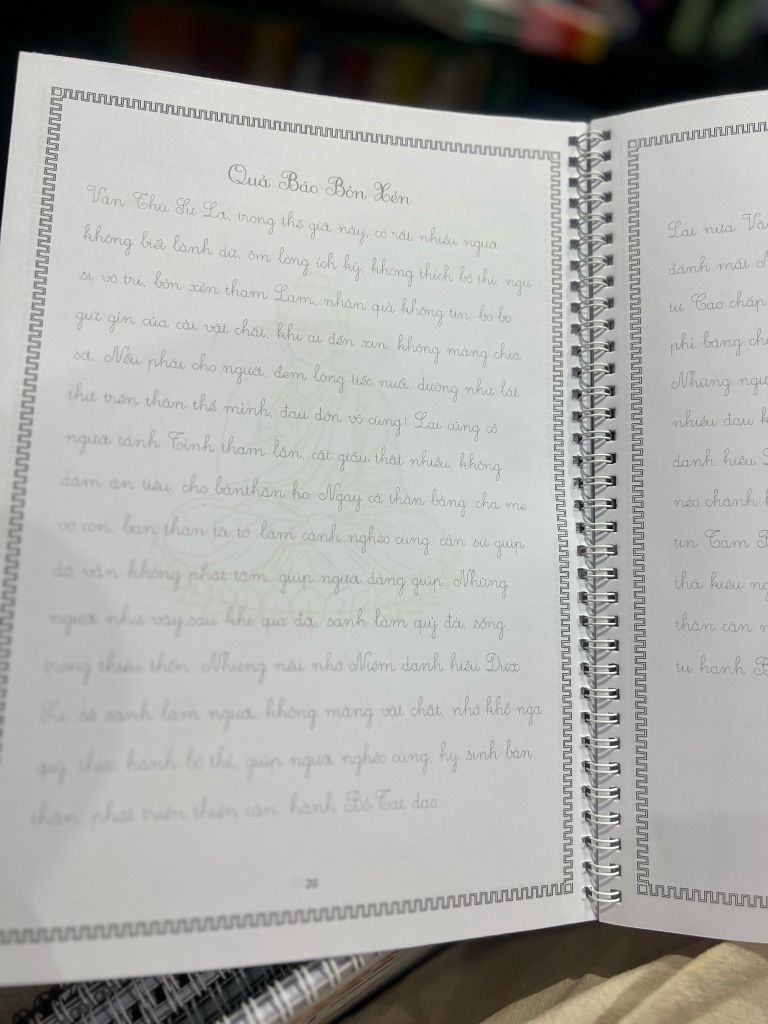 Quả Báo Bỏn Xẻn
Văn Thù Sư La, trong thế giơi này, có rất nhiều ngươi
không biết lành dữ, ôm lòng ích kỷ, không thích bố thí, ngu
si vô trí, bỏn xẻn tham Lam, nhân quả không tin, bo bo
giữ gìn của cải vật chất, khi ai đến xin, không màng chia
sớt. Nếu phải cho người, đem lòng tiếc nuối, dường như lát
thịt trên thân thể mình, đau đớn vô cùng! Lai cũng có
người tánh Tình tham lẫn, cất giấu thật nhiều, không
dám ăn tiêu, cho bảnthân họ. Ngay cả thân bằng cha mẹ
vợ con, bạn thân tôi tớ, lâm cảnh nghèo cùng, cần sự giúp
đỡ, vẫn không phát tâm, giúp người đáng giúp. Những
người như vậy sau khi qua đời, sanh làm quỷ đói, sống
trong thiếu thốn. Nhưng nếu nhớ Niệm danh hiệu Dược
sẽ sanh làm người, không màng vật chất, nhớ khổ ngạ
quỷ, thực hành bố thí, giúp người nghèo cùng, hy sinh bản
thân, phát triển thiện căn, hành Bồ Tát đạo
20
Lại nữa Vă
đánh mất
tự Cao chấp
phỉ báng ch
Những ngư
nhiều đau k
danh hiệu
nẻo chánh
tin Tam
thà kiêu ng
thân cận
tu hành